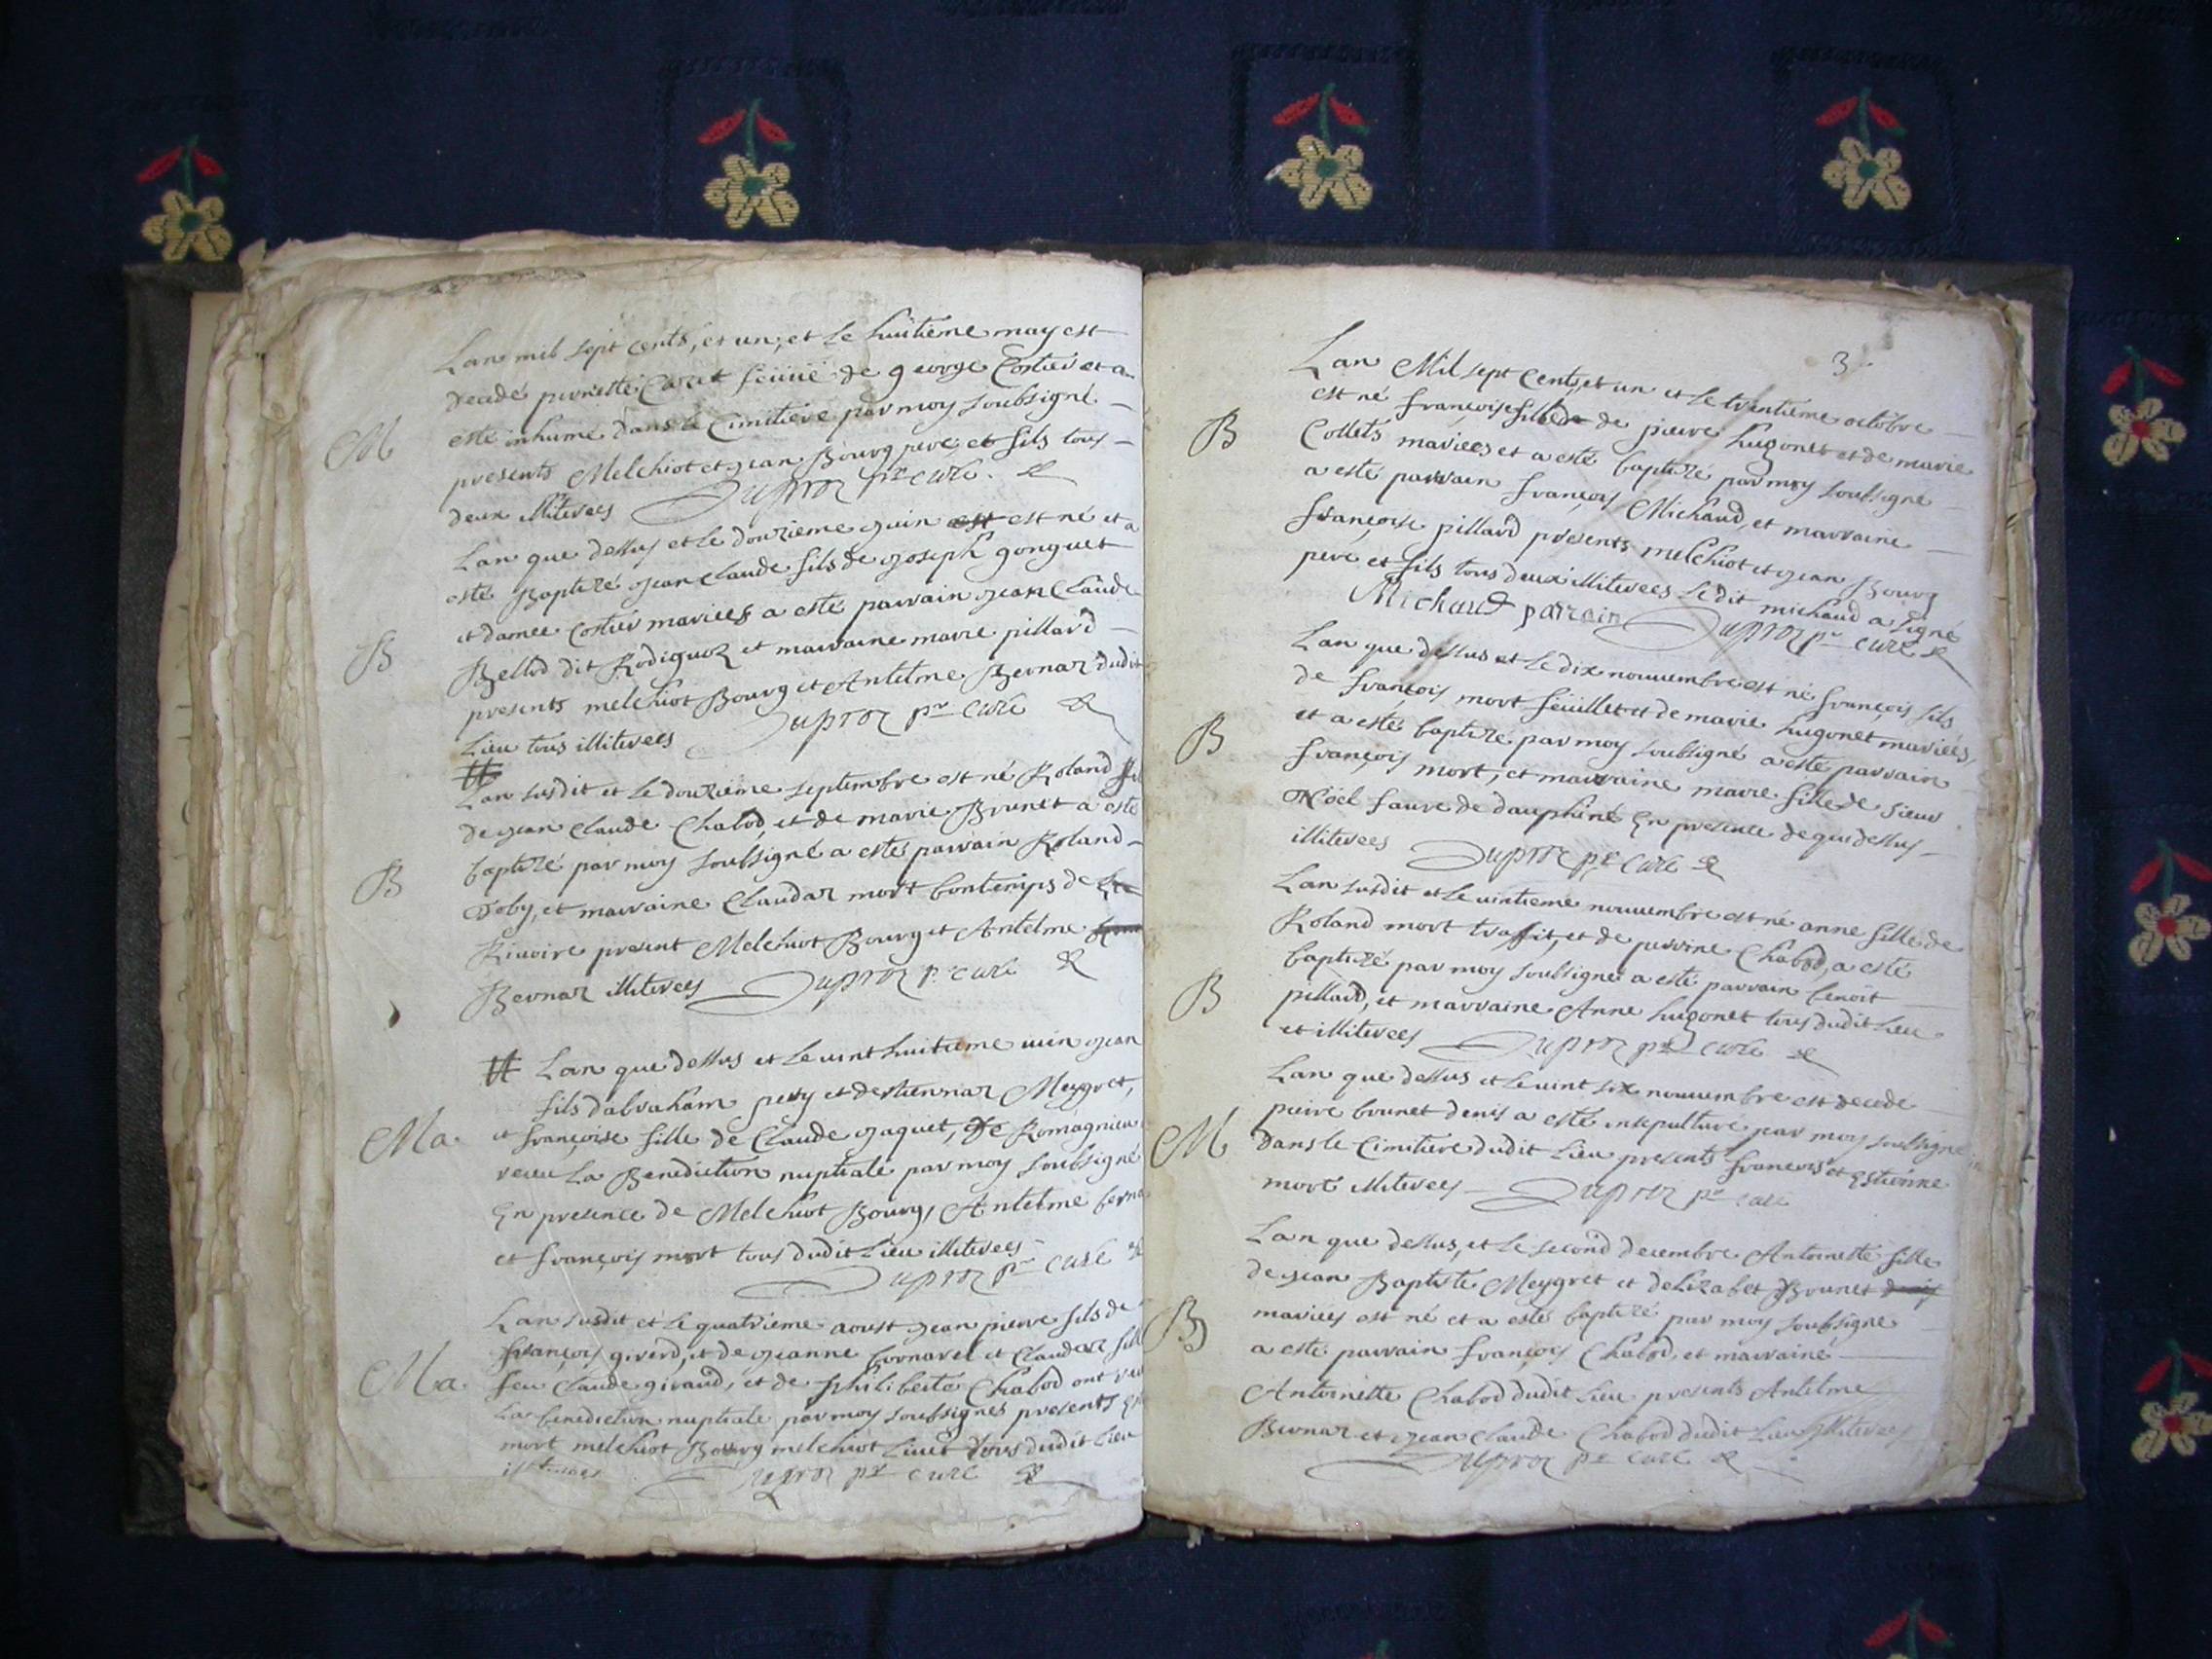 Lan mil sept cents, et un, et le huitieme may est
decedé pernette Caret de george Costier et a
esté inhumé dans le Cimitiere par moy soubsigné
M
presents Melchiot et jean Bourg pere et fils tous
deux illiterees Dupror pr curé
Lan que dessus et le douzieme juin est né et a
esté Baptizé jean Claude fils de joseph gonguet
et damee Costier mariees a esté parrain jean Claude
B
Bellod dit Rodiguoz et marraine marie pillard
presents melchiot Bourg et Antelme Bernaz dudit
Lieu tous illiterees Dupror pr Curé
Lan susdit et le douzieme septembre est né Roland
de jean Claude Chabod, et de marie Brunet a esté
B
baptizé par moy soubsigné a esté parrain Roland
Joly, et marraine Claudaz mort bontemps de
Riuoire present Melchiot Bourg et Antelme
Bernaz illiterees Dupror pr curé
Lan que dessus et le uint huitieme juin jean
fils dabraham petty et destiennaz Meygret,
Ma.
et françoise fille de Claude jaquet, de Romagnieu
receu La Benediction nuptiale par moy soubsigné
En presence de Melchiot Bourg, Antelme berna
et françois mort tous dudit Lieu illiterees
Dupror pr curé
Lan susdit et le quatrieme aoust jean pierre fils de
françois giverd, et de jeanne et Claudaz fill
Ma.
feu Claude giraud, et de philiberte Chabod ont
La benediction nuptiale par moy soubsignés presents
mort melchiot Bourg melchiot tous dudit Lieu
Dupror pr curé
3
Lan Mil sept Cents, et un et le trentieme octobre
est né françoise fille de pierre hugonet et de marie
B
Collets mariees et a esté baptizé par moy soubsigné
a esté parrain françois Michaud, et marraine
françoise pillard presents melchiot et jean Bourg
pere et fils tous deux illiterees Ledit michaud a signé
Michaud parrain Dupror pr curé
Lan que dessus et le dix nouuembre est né françois fils
de françois mort feuillet et de marie hugonet mariées,
B
et a esté baptizé par moy soubsigné a esté parrain
françois mort, et marraine marie fille de sieur
Nöel faure de dauphiné En presence de que dessus
illiterees Dupror pr Curé
Lan susdit et le uintieme nouuembre est né anne fille de
Roland mort traffit, et de perrine Chabod, a esté
B
baptizé par moy soubsigné a esté parrain benoit
pillard, et marraine Anne hugonet tous dudit Lieu
et illiterees Dupror pr curé
Lan que dessus et le uint six nouuembre est decede
pierre brunet denis a esté insepulturé par moy soubsigne
M
dans le Cimitiere dudit Lieu presents françois et Estienne
mort illiterees Dupror pr curé
Lan que dessus, et le second decembre Antoinette fille
de jean Baptiste Meygret et delizabet Brunet
B
mariees est né et a esté baptizé par moy soubsigné
a esté parrain françois Chabod, et marraine
Antoinette Chabod dudit Lieu presents Antelme
Bernaz et jean Claude Chabod dudit Lieu illiterees
Dupror pr curé